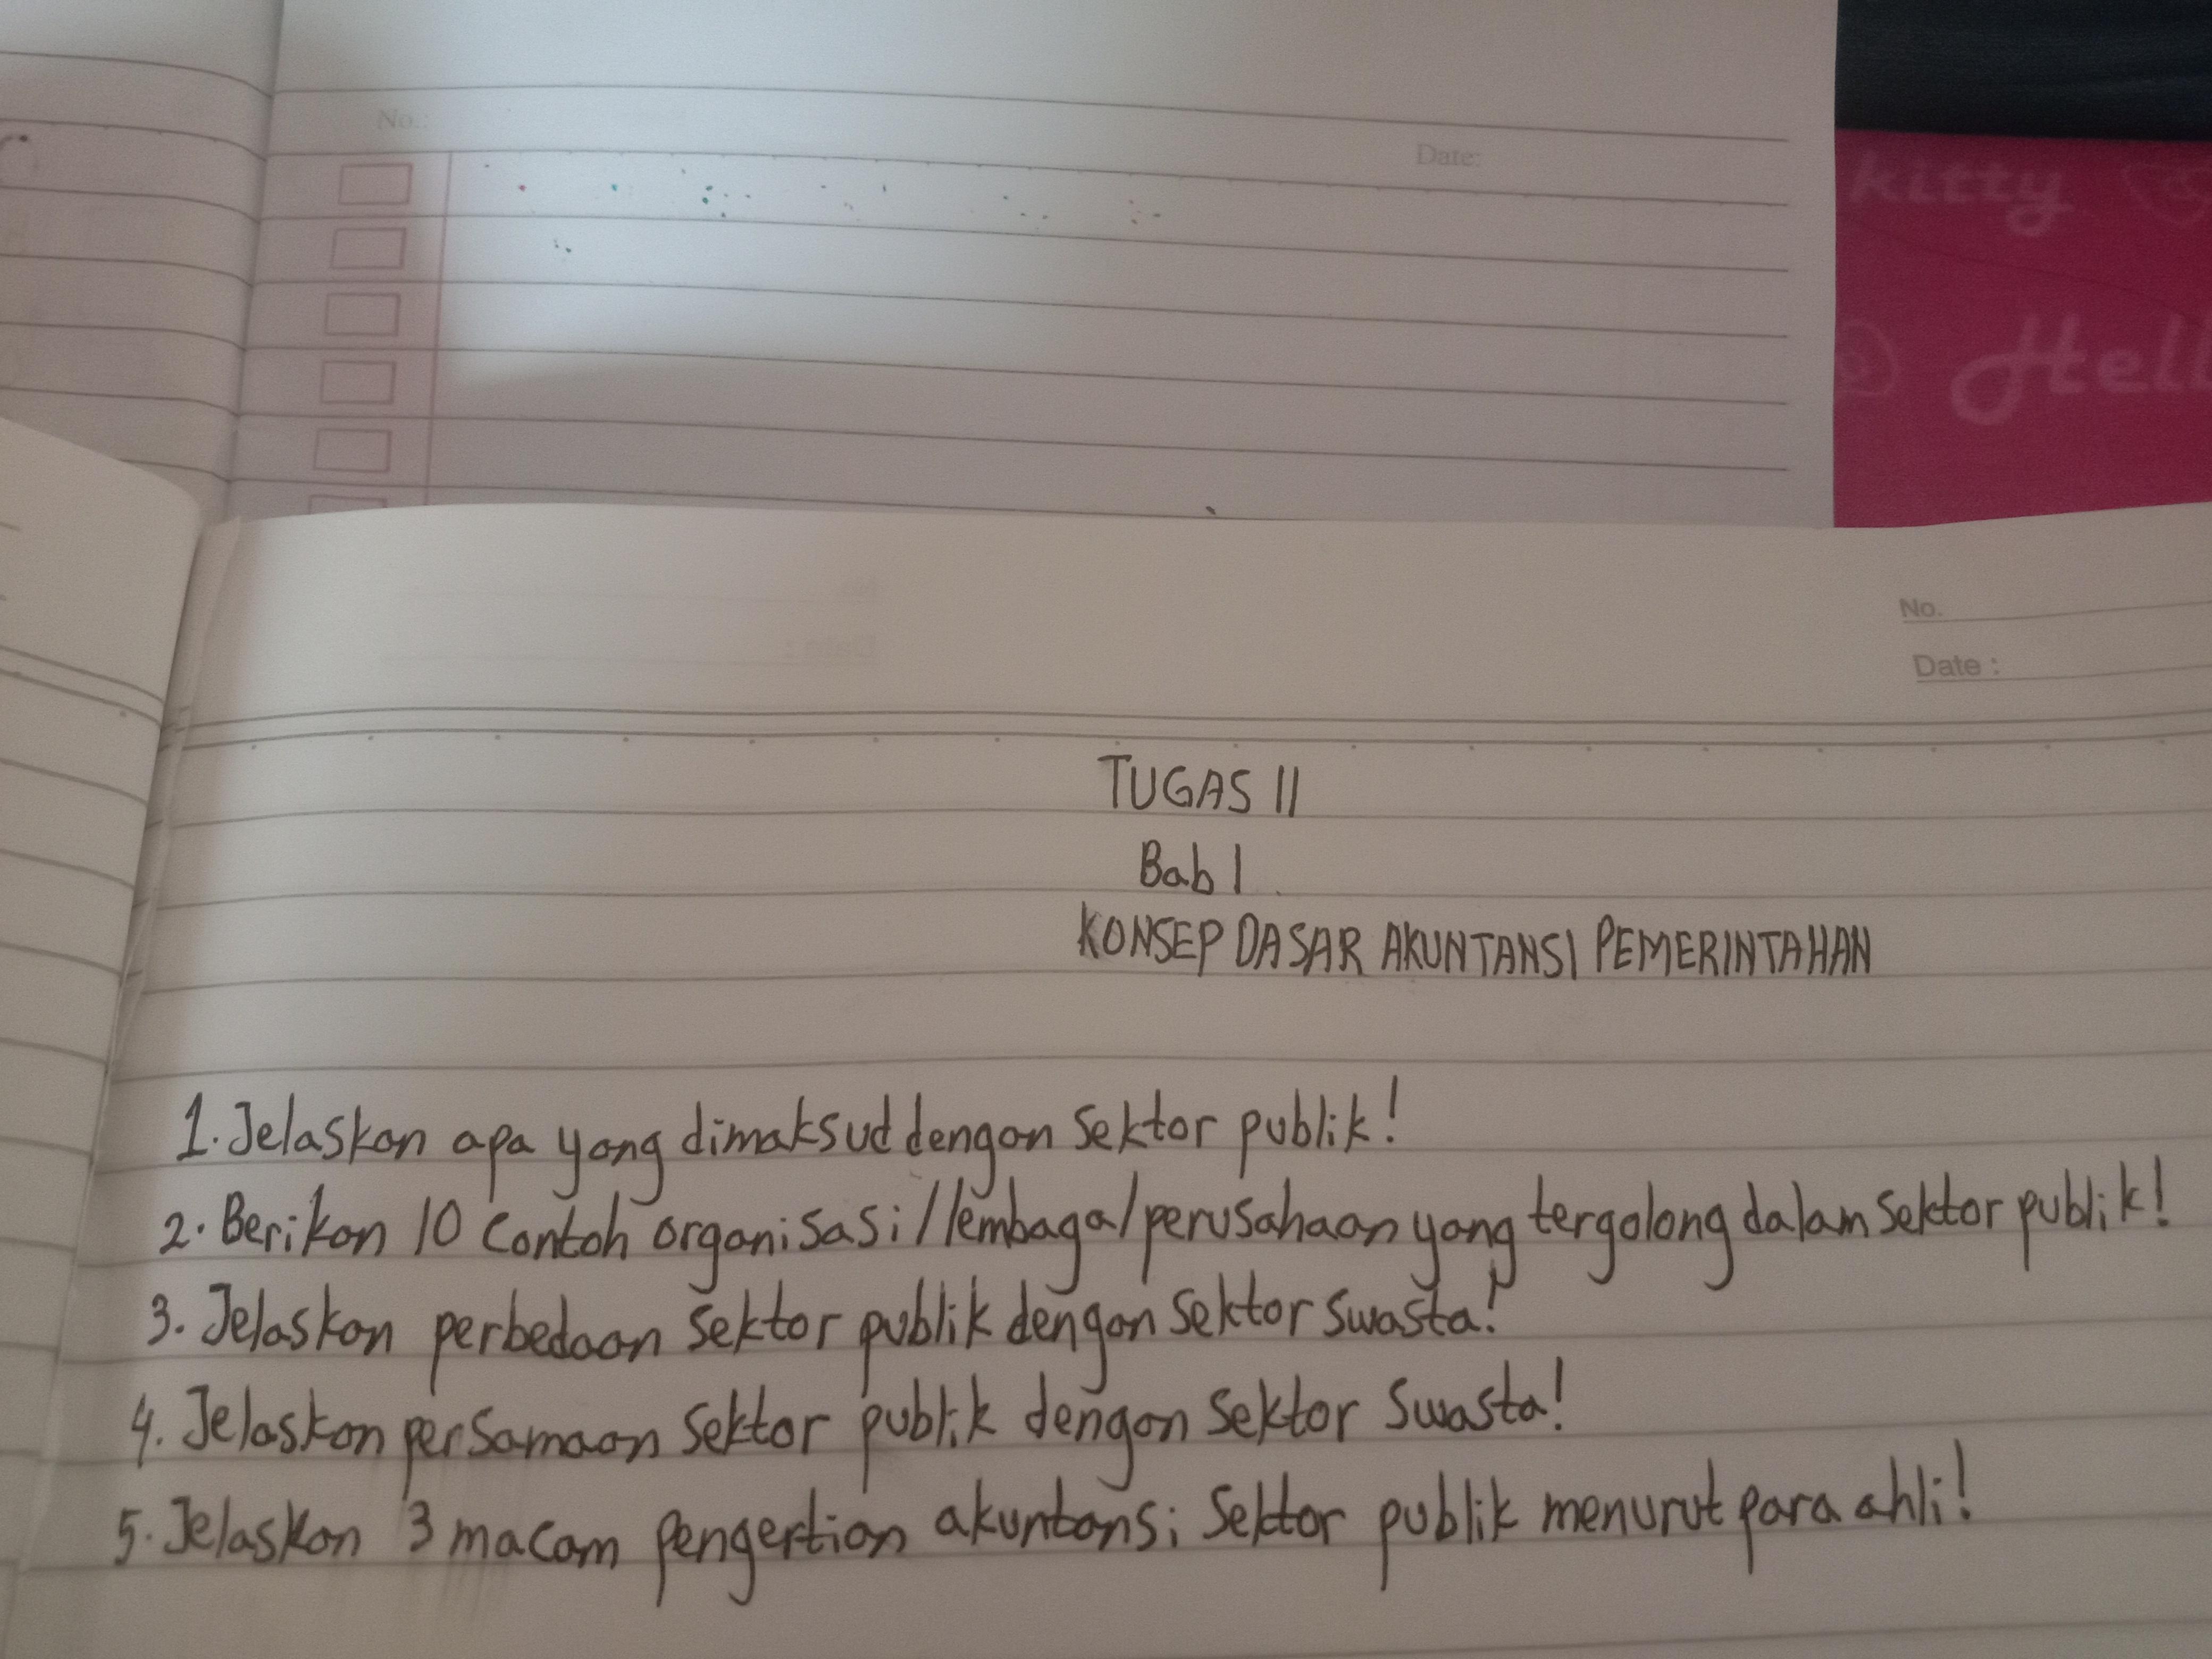 No.:
Date:
kitty
Hell
No.
Date :
TUGAS II
Bab 1
KONSEP DASAR AKUNTANSI PEMERINTAHAN
1. Jelaskan apa yang dimaksud dengan sektor publik!
2. Berikan 10 contoh organisasi/lembaga/perusahaan yang tergolong dalam sektor publik!
3. Jelaskan perbedaan sektor publik dengan sektor swasta!
4. Jelaskan persamaan sektor publik dengan sektor swasta!
5. Jelaskan 3 macam pengertian akuntansi sektor publik menurut para ahli!